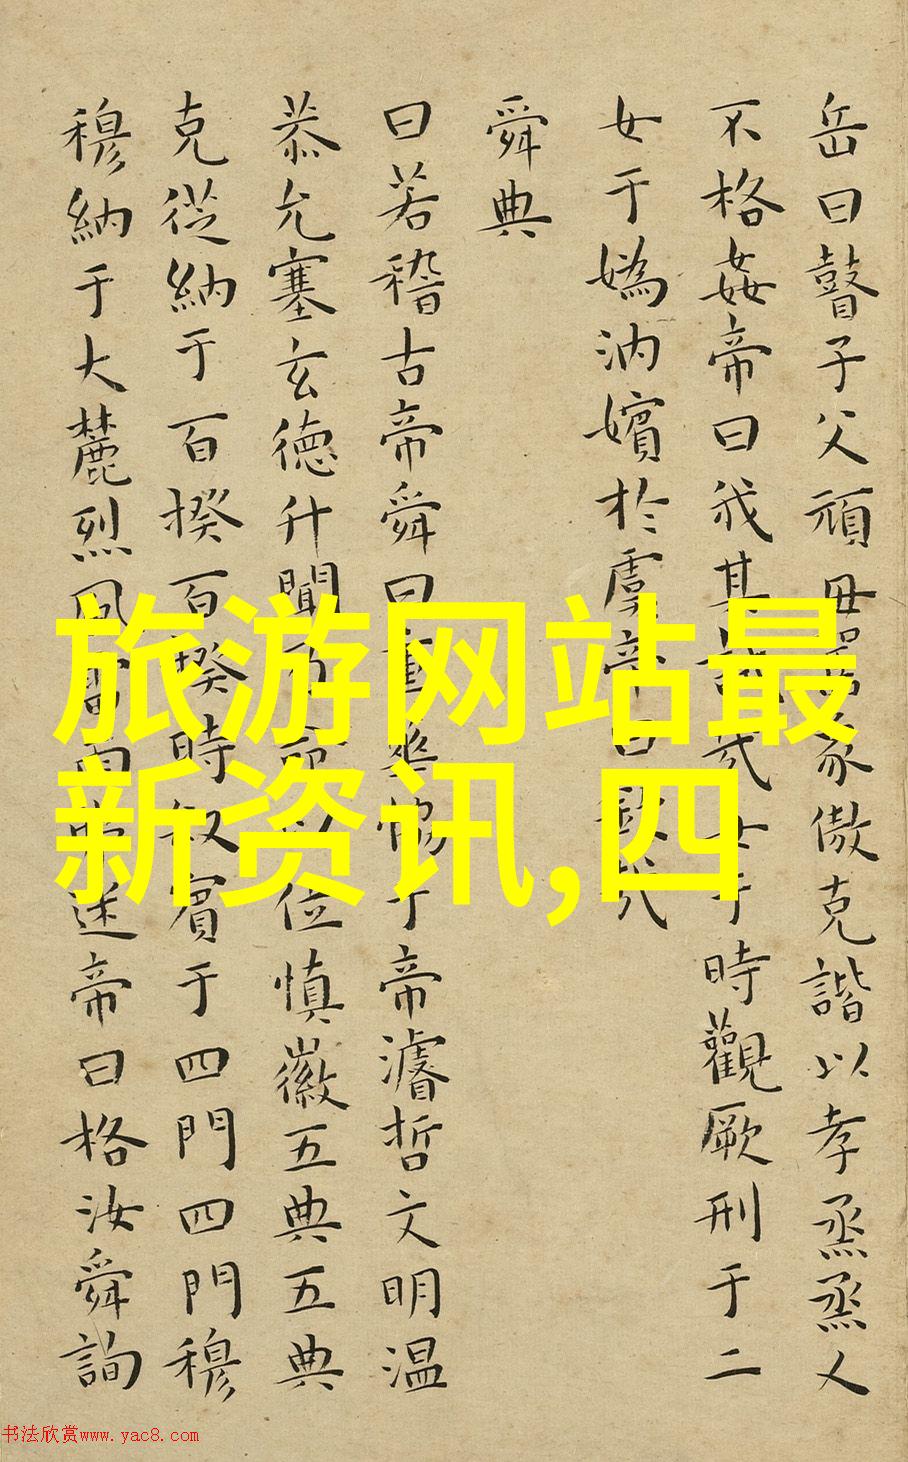 岳曰瞽子父頑毋嚚象傲克諧以孝烝烝乂
不格姦帝曰我其試哉女于時觀厥刑于二
女于媯汭嬪於虞帝曰欽哉
舜典
曰若稽古帝舜曰重華協于帝濬哲文明温
恭允塞玄德升聞乃命以位慎徽五典五典
克從納于百揆百揆時叙賓于四門四門穆
穆納于大麓烈風雷雨弗迷帝曰格汝舜詢
旅游网站最
新资讯,四
书法欣赏www.yac8.com